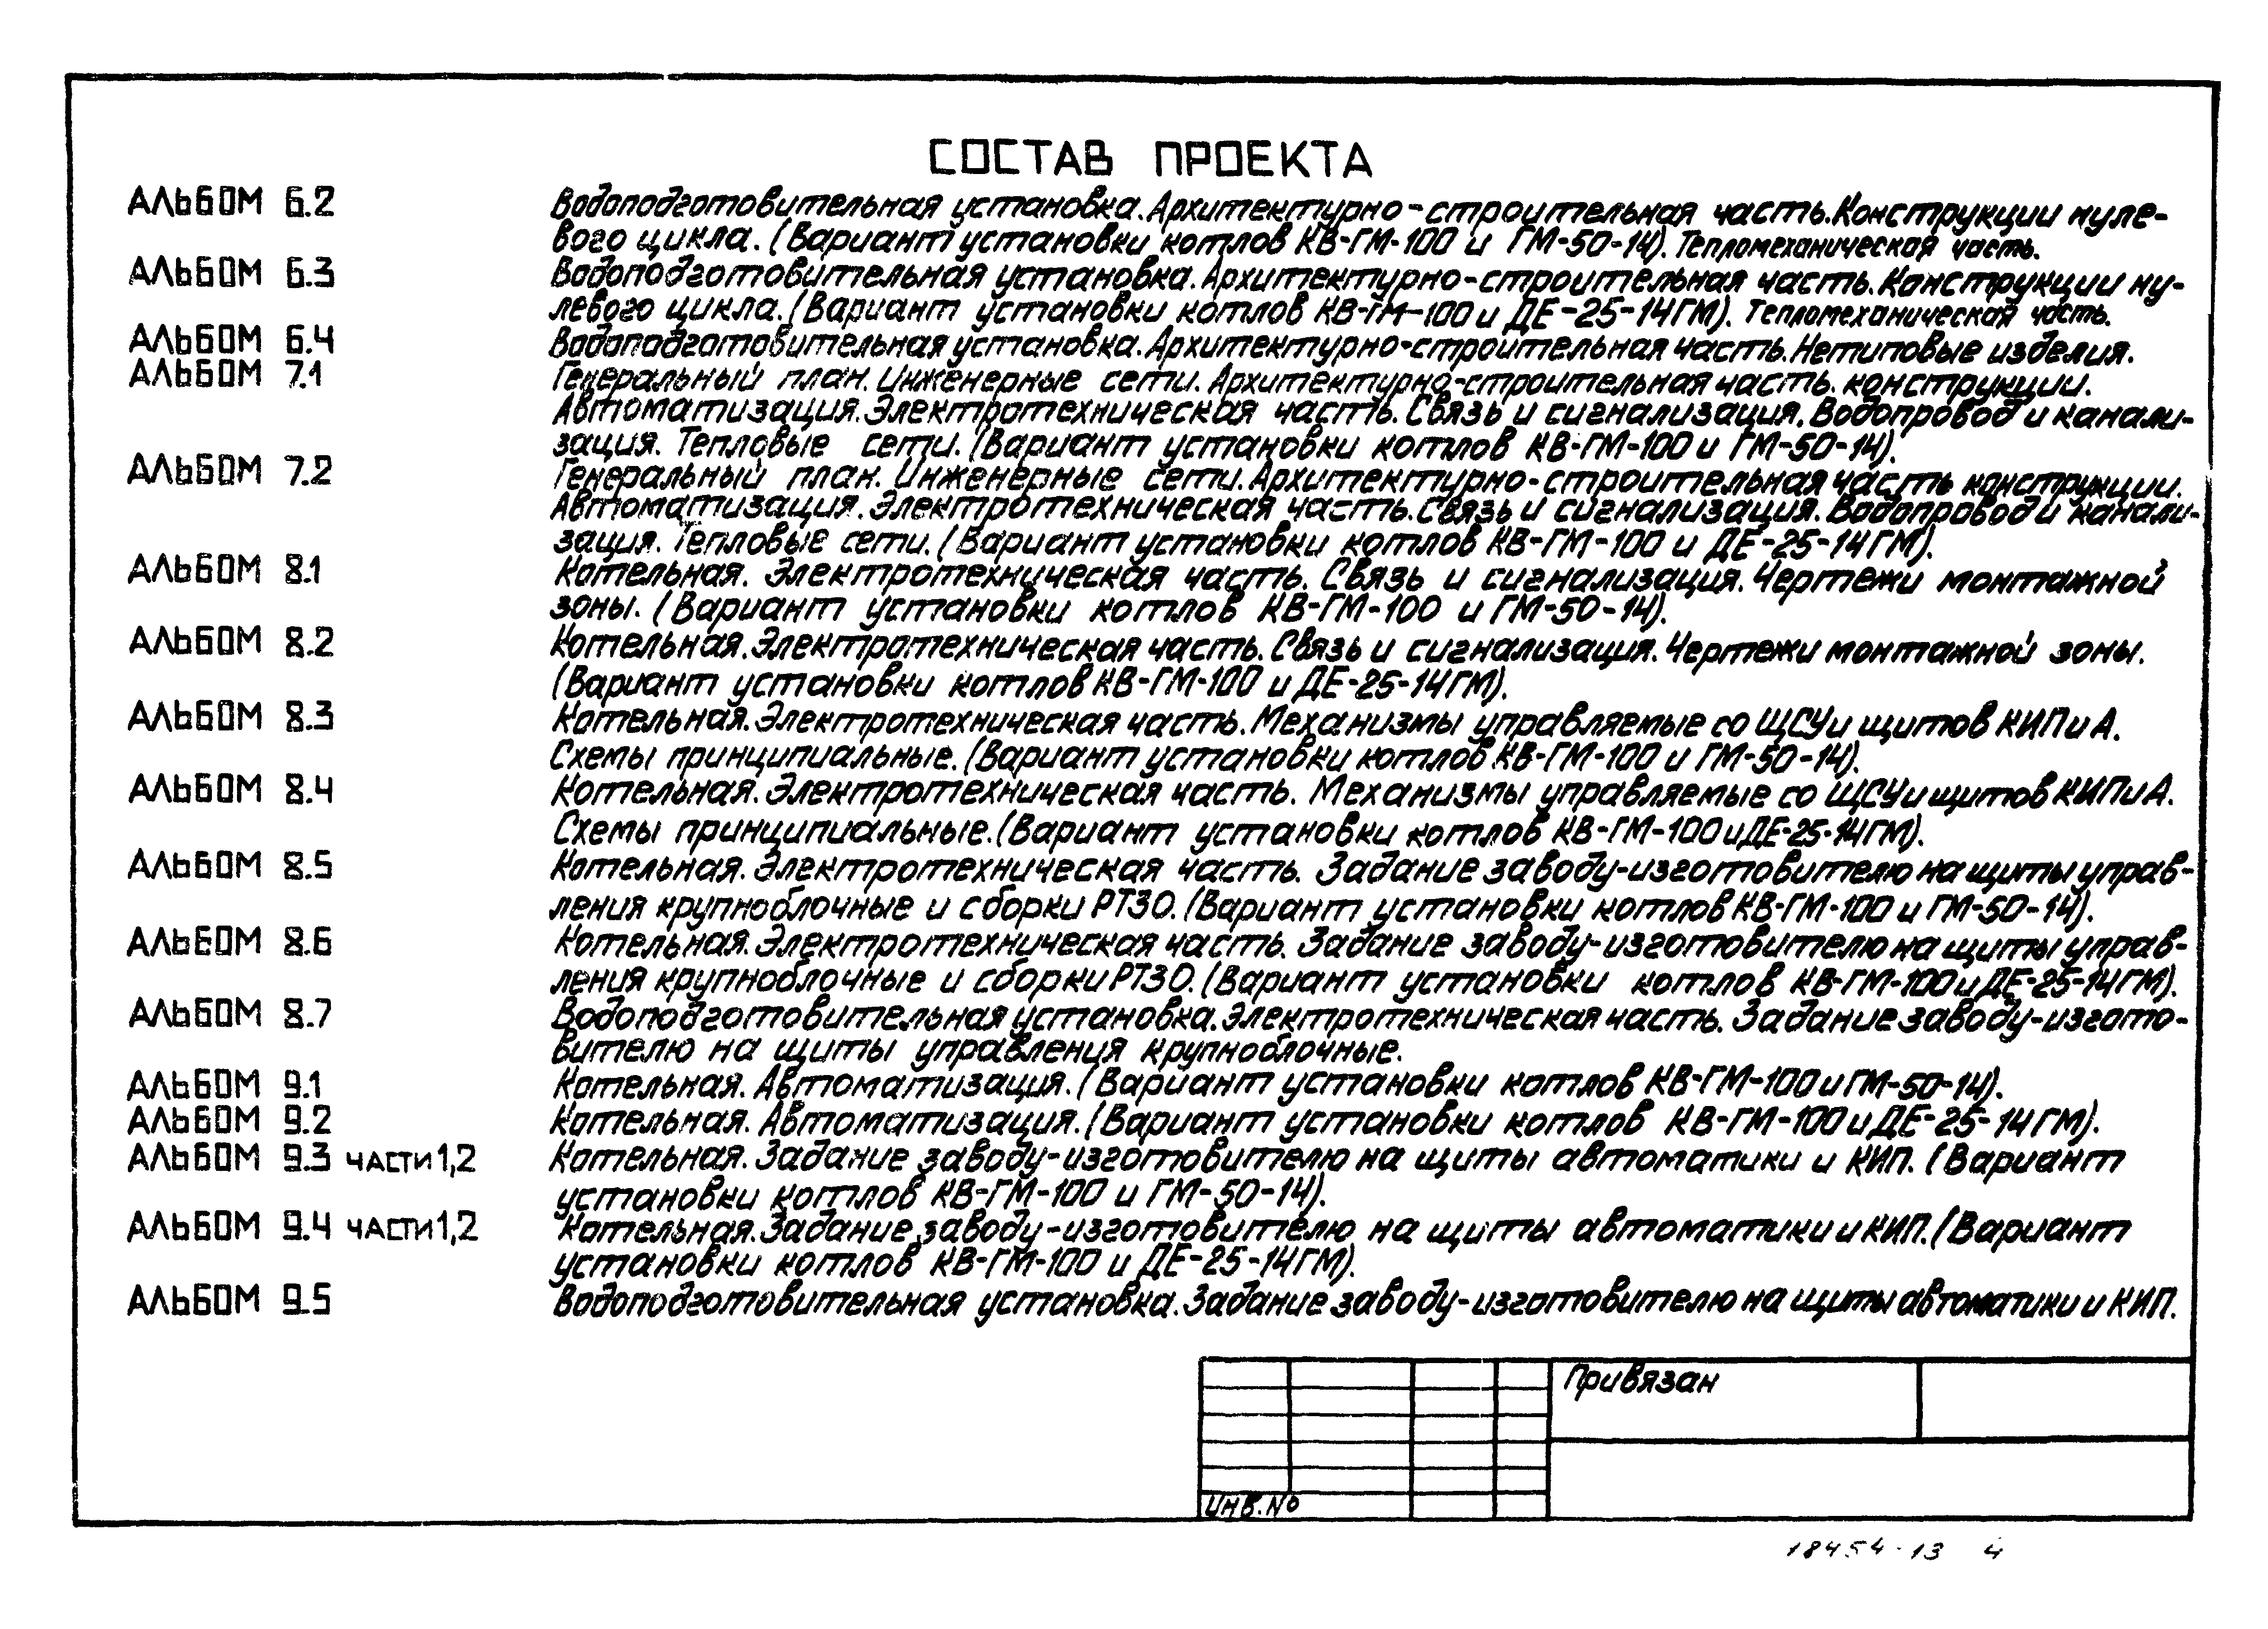 СОСТАВ ПРОЕКТА
АЛЬБОМ 6.2 Водоподготовительная установка. Архитектурно-строительная часть. Конструкции нуле-
вого цикла. (Вариант установки котлов КВ-ГМ-100 и ГМ-50-14). Тепломеханическая часть.
АЛЬБОМ 6.3 Водоподготовительная установка. Архитектурно-строительная часть. Конструкции ну-
левого цикла. (Вариант установки котлов КВ-ГМ-100 и ДЕ-25-14ГМ). Тепломеханическая часть.
АЛЬБОМ 6.4 Водоподготовительная установка. Архитектурно-строительная часть. Нетиповые изделия.
АЛЬБОМ 7.1 Генеральный план. Инженерные сети. Архитектурно-строительная часть. конструкции.
Автоматизация. Электротехническая часть. Связь и сигнализация. Водопровод и канали-
зация. Тепловые сети. (Вариант установки котлов КВ-ГМ-100 и ГМ-50-14).
АЛЬБОМ 7.2 Генеральный план. Инженерные сети. Архитектурно-строительная часть конструкции.
Автоматизация. Электротехническая часть. Связь и сигнализация. Водопровод и канали-
зация. Тепловые сети. (Вариант установки котлов КВ-ГМ-100 и ДЕ-25-14ГМ).
АЛЬБОМ 8.1 Котельная. Электротехническая часть. Связь и сигнализация. Чертежи монтажной
зоны. (Вариант установки котлов КВ-ГМ-100 и ГМ-50-14).
АЛЬБОМ 8.2 Котельная. Электротехническая часть. Связь и сигнализация. Чертежи монтажной зоны.
(Вариант установки котлов КВ-ГМ-100 и ДЕ-25-14ГМ).
АЛЬБОМ 8.3 Котельная. Электротехническая часть. Механизмы управляемые со ЩСУ и щитов КИП и А.
Схемы принципиальные. (Вариант установки котлов КВ-ГМ-100 и ГМ-50-14).
АЛЬБОМ 8.4 Котельная. Электротехническая часть. Механизмы управляемые со ЩСУ и щитов КИП и А.
Схемы принципиальные. (Вариант установки котлов КВ-ГМ-100 и ДЕ-25-14ГМ).
АЛЬБОМ 8.5 Котельная. Электротехническая часть. Задание заводу-изготовителю на щиты управ-
ления крупноблочные и сборки РТЗО. (Вариант установки котлов КВ-ГМ-100 и ГМ-50-14).
АЛЬБОМ 8.6 Котельная. Электротехническая часть. Задание заводу-изготовителю на щиты управ-
ления крупноблочные и сборки РТЗО. (Вариант установки котлов КВ-ГМ-100 и ДЕ-25-14ГМ).
АЛЬБОМ 8.7 Водоподготовительная установка. Электротехническая часть. Задание заводу-изгото-
вителю на щиты управления крупноблочные.
АЛЬБОМ 9.1 Котельная. Автоматизация. (Вариант установки котлов КВ-ГМ-100 и ГМ-50-14).
АЛЬБОМ 9.2 Котельная. Автоматизация. (Вариант установки котлов КВ-ГМ-100 и ДЕ-25-14ГМ).
АЛЬБОМ 9.3 ЧАСТИ 1,2 Котельная. Задание заводу-изготовителю на щиты автоматики и КИП. (Вариант
установки котлов КВ-ГМ-100 и ГМ-50-14).
АЛЬБОМ 9.4 ЧАСТИ 1,2 Котельная. Задание заводу-изготовителю на щиты автоматики и КИП. (Вариант
установки котлов КВ-ГМ-100 и ДЕ-25-14ГМ).
АЛЬБОМ 9.5 Водоподготовительная установка. Задание заводу-изготовителю на щиты автоматики и КИП.
Привязан
ИНВ. №
18454-13 4